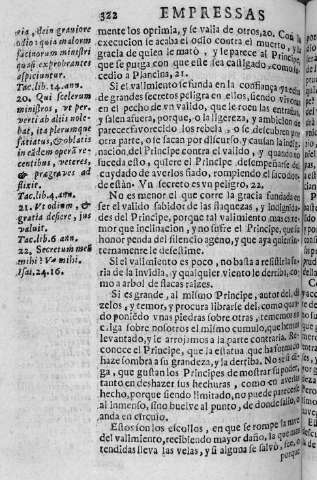 322 EMPRESSAS
ria, dein graviore
odio: quia malorum
facinorum ministri
quasi exprobrantes
aspiciuntur.
Tac. lib. 14. ann.
20. Qui scelerum
ministros, ut per-
verti ab aliis nole-
bat, ita plerumque
satiatus, & oblatis
in eādem operā re-
centibus, veteres,
& prægraves ad
flixit.
Tac. lib. 4. ann.
21. Ut odium, &
gratia desiere, jus
valuit.
Tac. lib. 6. ann.
22. Secretum meū
mihi: Væ mihi.
Isai. 24. 16.
mente los oprimia, y se valla de otros, 20. Con la
execucion le acaba el odio contra el muerto, y la
gracia de quien le mato, y le parece al Principe,
que se purga con que este sea castigado, como su-
cedio a Plancina, 21.
Si el valimiento se funda en la confiança
de grandes secretos peligra en ellos, siendo vivoras
en el pecho de un valido, que le roen las entrañas,
y salen afuera, porque, o la ligereza, y ambicion de
parecer favorecido los rebela, o se descubren por
otra parte, o se sacan por discurso, y causan la indig-
nacion del Principe contra el valido, y quando no
suceda esto, quiere el Principe desempeñarse del
cuydado de averlos fiado, rompiendo el saco don-
de están. Un secreto es un peligro, 22.
No es menor el que corre la gracia fundada en
ser el valido sabidor de las flaquezas, y
des del Principe, porque tal valimiento mas es te-
mor que inclinacion, y no sufre el Principe, que su
honor penda del silencio ageno, y que aya quien in-
ternamente le desestime.
Si el valimiento es poco, no basta a resistir la fu-
ria de la invidia, y qualquier viento le derriba, co-
mo a arbol de flacas raizes.
Si es grande, al mismo Principe, autor del, dà
zelos, y temor, y procura librarse del, como quan-
do poniēdo unas piedras sobre otras, tememos no
caiga sobre nosotros el mismo cumulo, que hemos
levantado, y le arrojamos a la parte contraria. Re-
conoce el Principe, que la estatua que ha formado
haze sombra a su grandeza, y la derriba. No se si di-
ga, que gustan los Principes de mostrar su poder,
tanto en deshazer sus hechuras, como en averlas
hecho, porque siendo limitado, no puede parecerse
al inmenso, sino buelve al punto, de donde salio, o
anda en circulo.
Estos son los escollos, en que se rompe la nave
del valimiento, recibiendo mayor daño, la que mas
tendidas lleva las velas, y si alguna se salvò, fue, o
porque